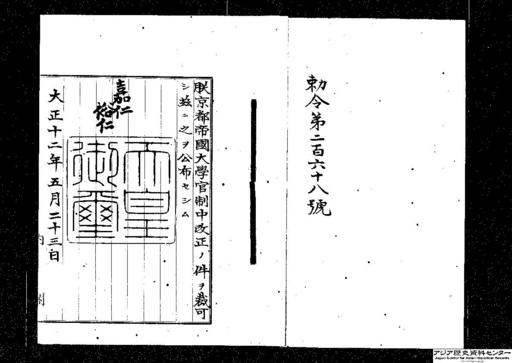 勅令第二百六十八號
朕京都帝國大學官制中改正ノ件ヲ裁可
シ茲ニ之ヲ公布セシム
嘉仁
裕仁
天皇
御璽
大正十二年五月二十三日
内
閣
アジア歴史資料センター
Japan Center for Asian Historical Records